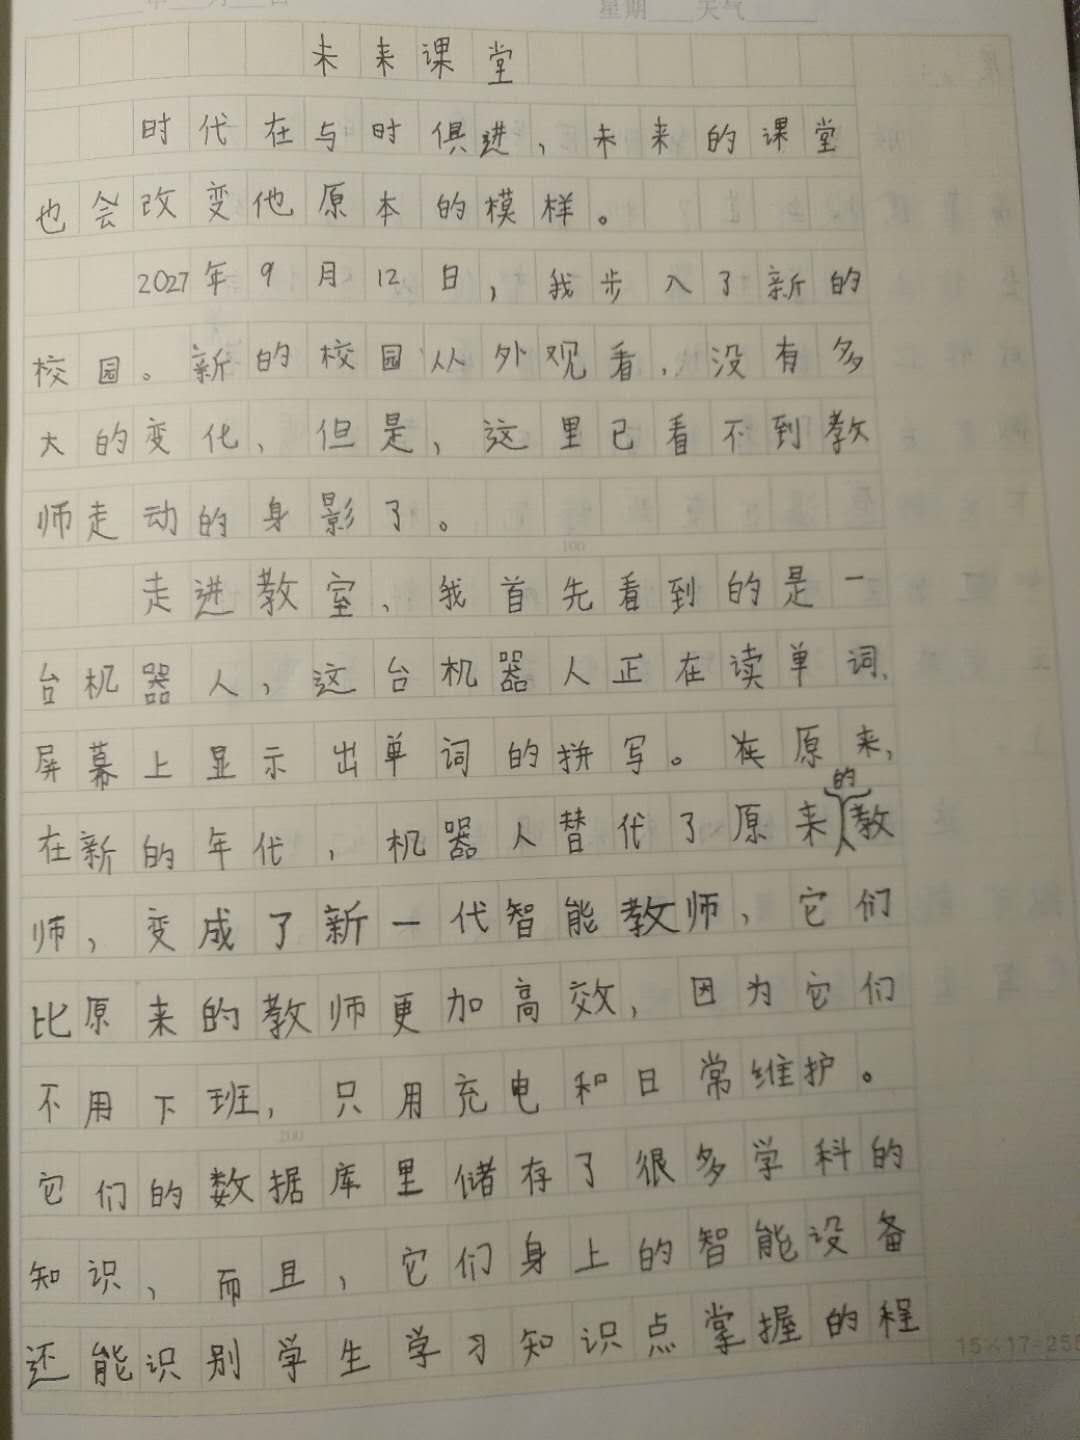 星期 天气
未来课堂
时代在与时俱进，未来的课堂
也会改变他原本的模样。
2027年9月12日，我步入了新的
校园。新的校园从外观看，没有多
大的变化，但是，这里已看不到教
师走动的身影了。
走进教室，我首先看到的是一
台机器人，这台机器人正在读单词，
屏幕上显示出单词的拼写。原来，
在新的年代，机器人替代了原来的教
师，变成了新一代智能教师，它们
比原来的教师更加高效，因为它们
不用下班，只用充电和日常维护。
它们的数据库里储存了很多学科的
知识，而且，它们身上的智能设备
还能识别学生学习知识点掌握的程
100
200